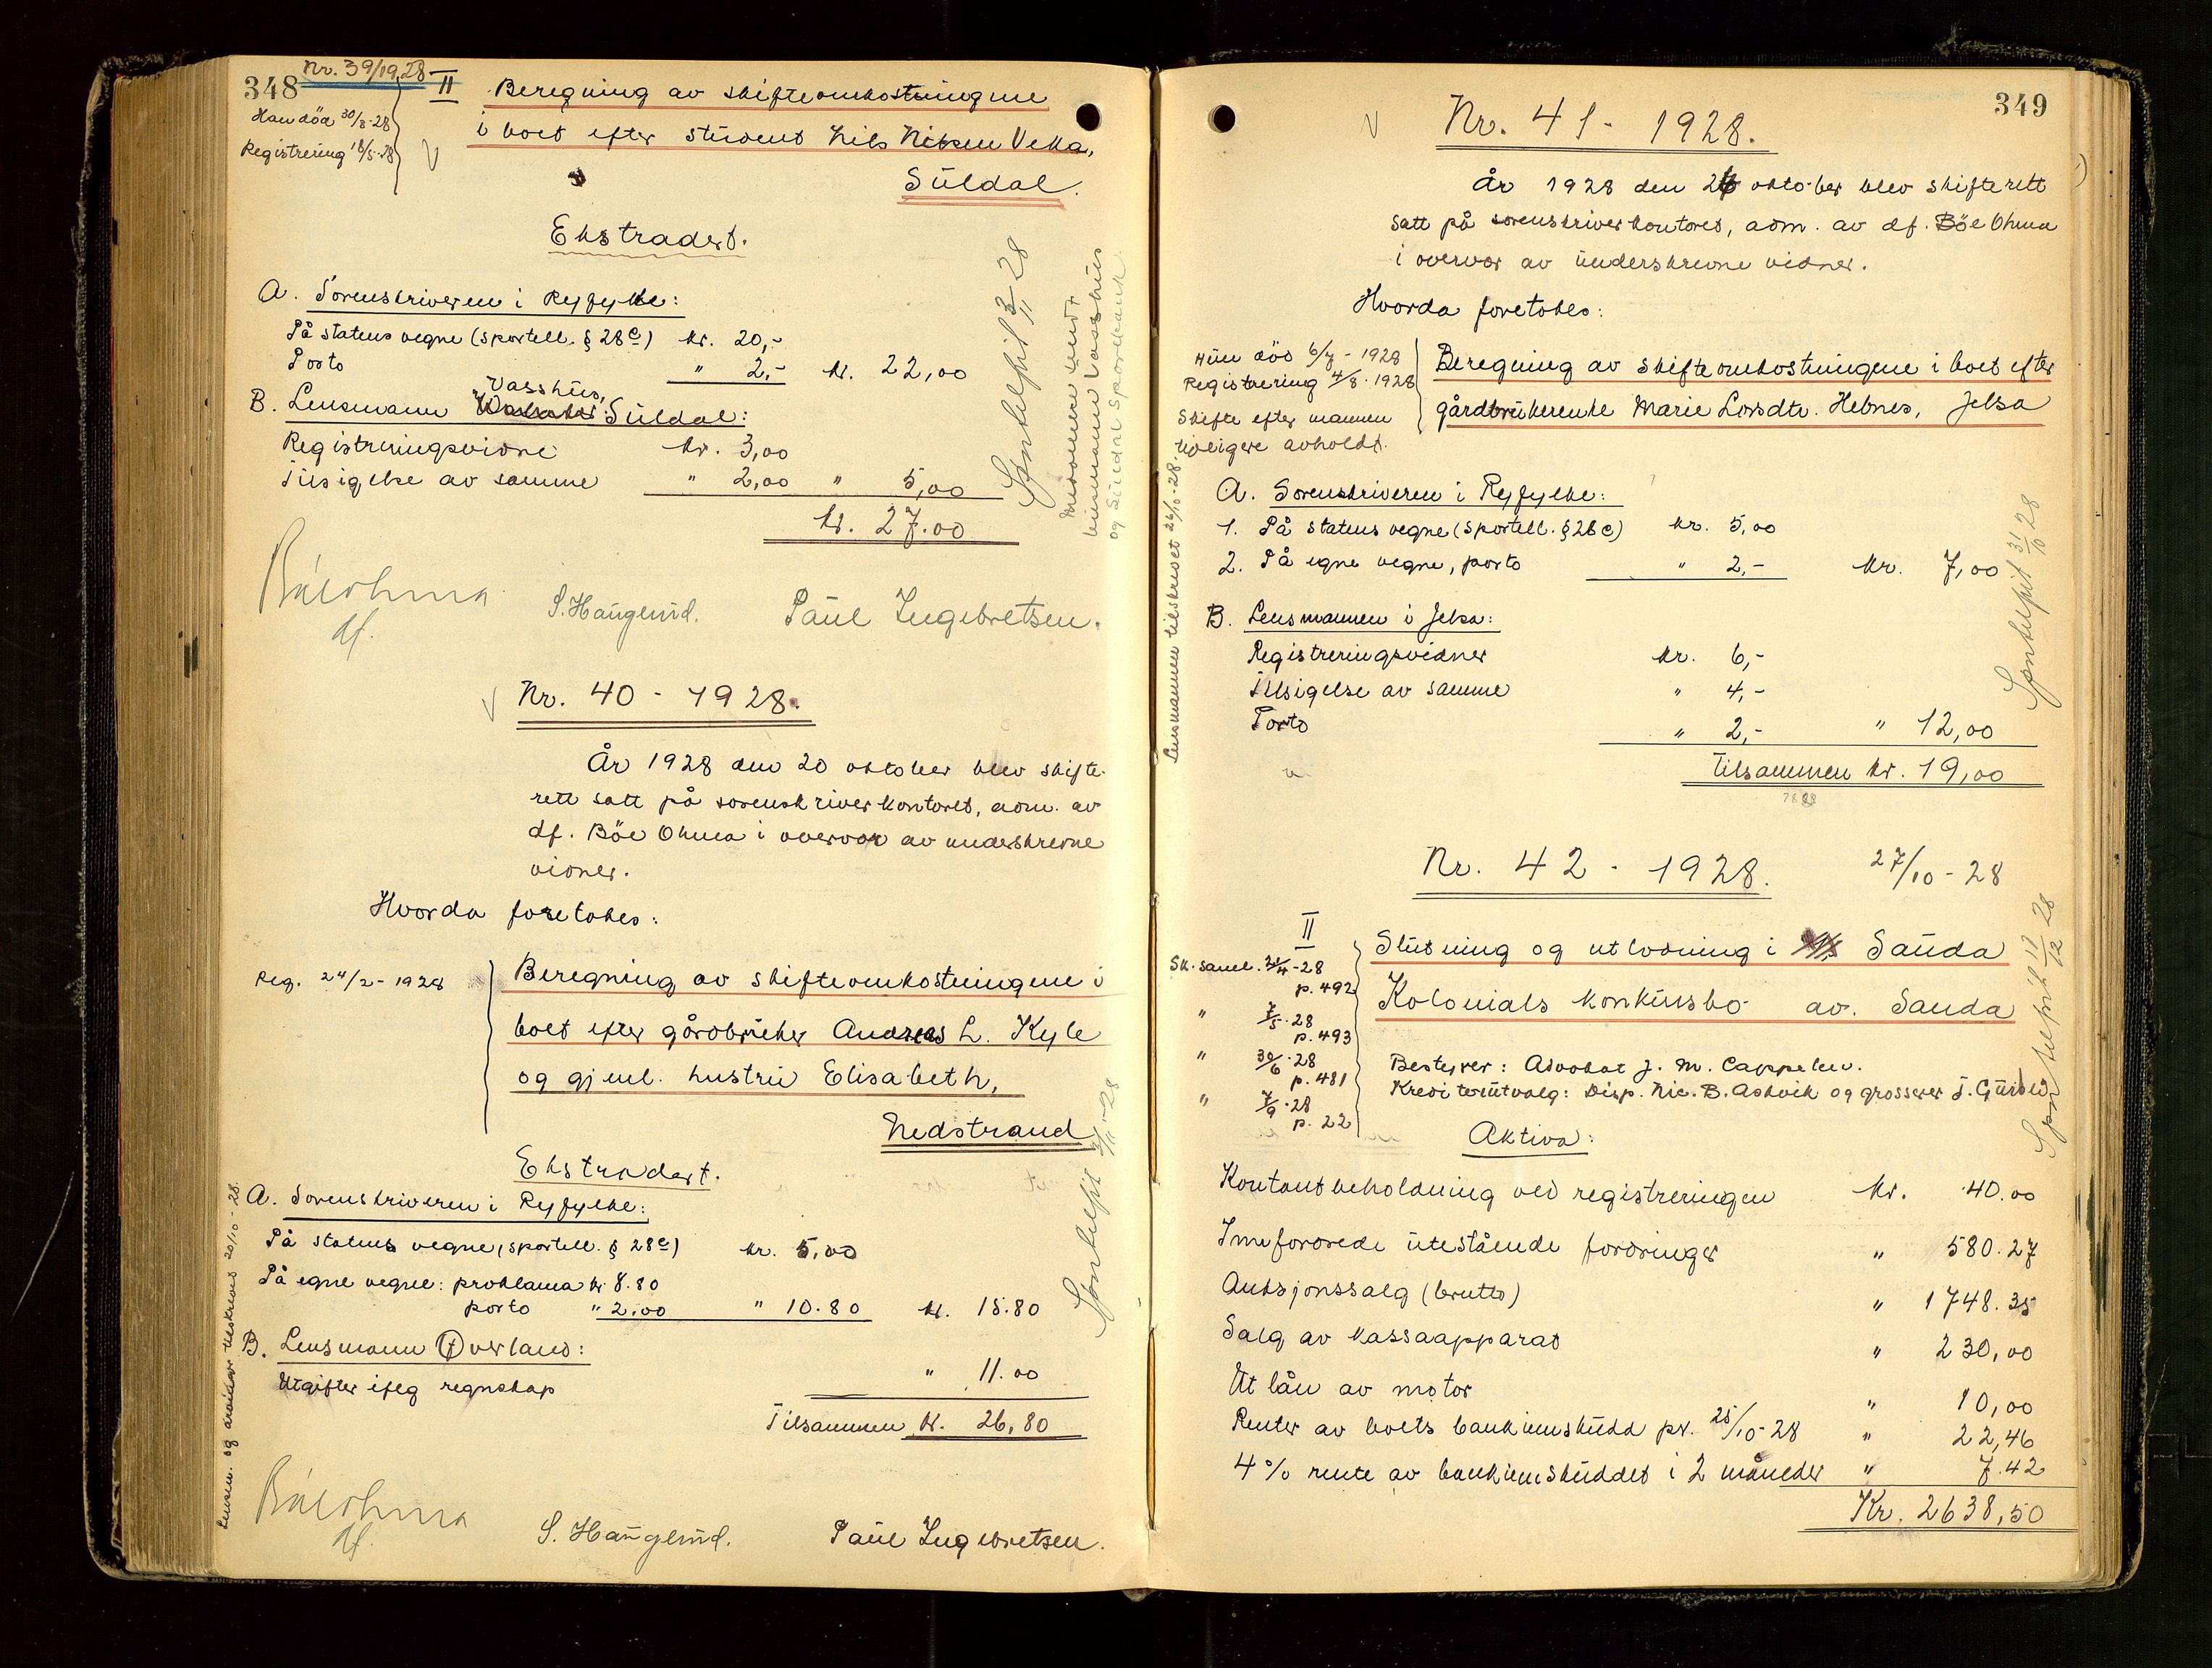 348
Nr. 39/1928
Han död 30/3-28
Registrering 18/5-28
II Beregning av skifteomkostningene
i boet efter student Nils Nilsen Veka,
Süldal.
Ekstradert.
A. Sorenskriveren i Ryfylke:
På statens vegne (sportell. § 28c) kr. 20,-
Porto " 2,- kr. 22,00
Vasshüs,
B. Lensmann Süldal:
Registreringsvidne kr. 3,00
Tilsigelse av samme " 2,00 " 5,00
kr. 27.00
Böe Ohma
df.
S. Haüglund.
Paül Ingebretsen.
lensmann Vasshüs
og Süldal Sparebank
Nr. 40 - 1928.
År 1928 den 20 oktober blev skifte-
rett satt på sorenskriverkontoret, adm. av
df. Böe Ohma i overvær av underskrevne
vidner.
Hvorda foretokes:
Reg. 24/2-1928
Beregning av skifteomkostningene i
boet efter gårdbrüker Andreas L. Kyle
og gjenl. hustrü Elisabeth,
Nedstrand
Ekstradert.
A. Sorenskriveren i Ryfylke:
På statens vegne (sportell. § 28c) kr. 5,00
På egne vegne: proklama kr. 8.80
porto " 2.00 " 10.80 kr. 15.80
B. Lensmann Øverland:
Utgifter ifölg regnskap " 11.00
Tilsammen kr. 26,80
Lensm. og arvinger tilskrevet 20/10-28.
Böe Ohma
df.
S. Haüglund.
Paül Ingebretsen.
349
Nr. 41 - 1928.
År 1928 den 26 oktober blev skifterett
satt på sorenskriverkontoret, adm. av df. Böe Ohma
i overvær av ünderskrevne vidner.
Hvorda foretokes:
Hün död 6/7 - 1928
Registrering 4/8 - 1928
Skifte efter mannen
tidligere avholdt.
Beregning av skifteomkostningene i boet efter
gårdbrükerenke Marie Larsdtr. Hebnes, Jelsa
Lensmannen tilskrevet 26/10-28.
A. Sorenskriveren i Ryfylke:
1. På statens vegne (sportell. § 28c) kr. 5,00
2. På egne vegne, porto " 2,- kr. 7,00
B. Lensmannen i Jelsa:
Registreringsvidner kr. 6,-
Tilsigelse av samme " 4,-
Porto " 2,- " 12,00
Tilsammen kr. 19,00
Nr. 42 - 1928. 27/10 - 28
II
Sk. saml. 21/4-28
p. 492
" 7/5-28
p. 493
" 30/6-28
p. 481
" 7/9-28
p. 22
Slütning og utlodning i Saüda
Kolonials konkürsbo av Sauda
Bestyrer: Advokat J. M. Cappelen.
Kreditorütvalg: Disp. Nic. B. Askvik og grosserer
Aktiva:
Kontantbeholdning ved registreringen kr. 40.00
Innfordrede ütestående fordringer " 580.27
Auksjonssalg (brutto) " 1748.35
Salg av kassaapparat " 230,00
Utlån av motor " 10,00
Renter av boets bankinnsküdd pr. 25/10-28 " 22,46
4% rente av bankinnsküddet i 2 måneder " 7.42
Kr. 2638,50